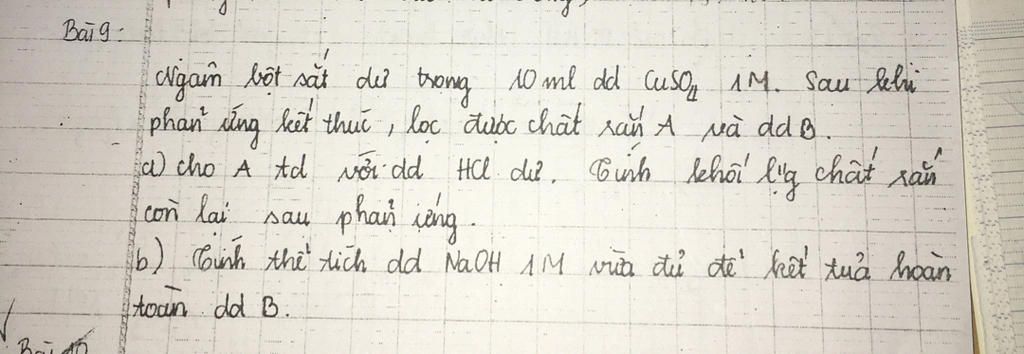 Bài 9:
Ngâm bột sắt dư trong 10 ml dd CuSO4 1M. Sau khi
phản ứng kết thúc, lọc được chất rắn A và dd B.
a) cho A td với dd HCl dư. Tính khối lg chất rắn
còn lại sau phản ứng.
b) Tính thể tích dd NaOH 1M vừa đủ để kết tủa hoàn
toàn dd B.
Bài 10